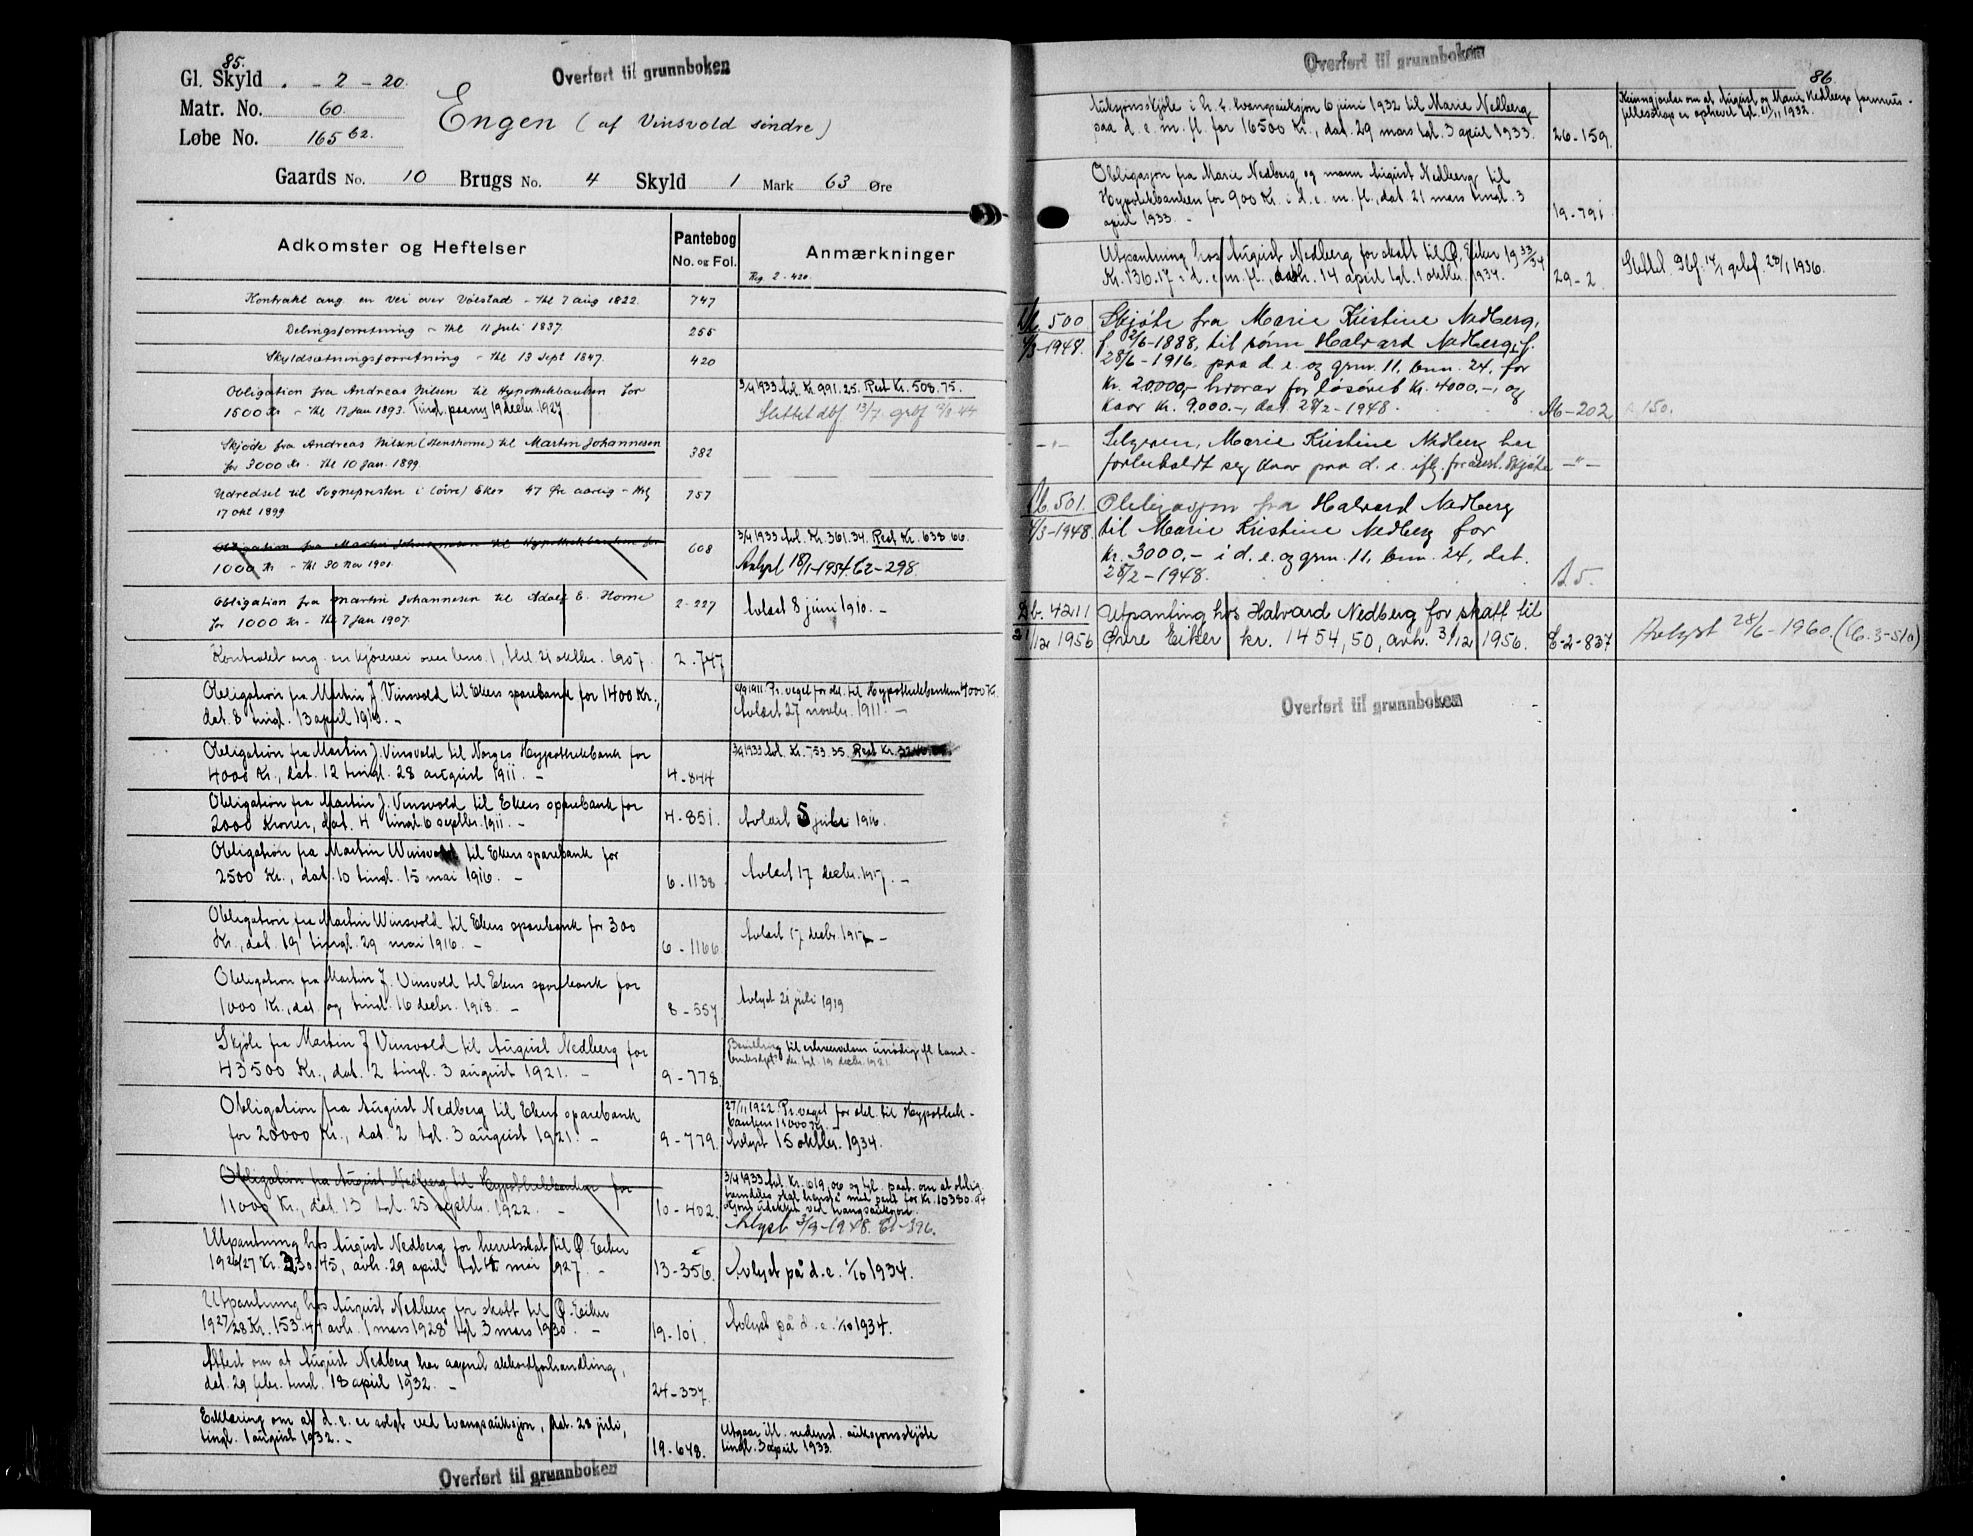 85.
Gl. Skyld . - 2 - 20.
Overført til grunnboken
Matr. No. 60.
Engen (af Vinsvold søndre)
Løbe No. 165 b2.
Gaards No. 10 Brugs No. 4 Skyld 1 Mark 63 Øre
Adkomster og Heftelser
Pantebog No. og Fol.
Anmærkninger
Reg. 2 - 420.
Kontrakt ang. en vei over Volstad - thl 7 aug 1822. 747
Delingsforretning - thl 11 juli 1837. 255
Skyldsætningsforretning - thl 13 Sept 1847. 420
Obligation fra Andreas Nilsen til Hypothekbanken for
1500 Kr - thl 17 Jan 1893. Tingl. paany 19 decbr. 1927
3/4 1933 Avl. Kr. 991.25. Rest Kr. 508.75.
Slettet dbf 13/7. grbf
Skjøde fra Andreas Nilsen (Stenshorne) til Martin Johannesen
for 3000 Kr. - thl 10 Jan. 1899. 382
Udredsel til Sognepresten i (øvre) Eker 47 Øre aarlig -
17 okt 1899 757
Obligation fra Martin Johannesen til Hypothekbanken for
1000 Kr - thl 30 Nov 1901. 608
3/4 1933 Avl. Kr. 361.34. Rest Kr. 638.66.
Avlyst 18/1-1954. C2-298.
Obligation fra Martin Johannesen til Adolf E. Horne
for 1000 Kr - thl 7 Jan 1907. 2-227
Avlæst 8 juni 1910. -
Kontrakt ang. en kjørevei over bno. 1, thl. 21 oktbr. 1907. 2-747
Obligation fra Martin J. Vinsvold til Ekers sparebank for 1400 Kr.,
dat. 8 tingl. 13 april 1910. -
1911. Pr. veget for obl. til Hypothekbanken 4000 Kr.
Avlæst 27 novbr. 1911. -
Obligation fra Martin J. Vinsvold til Norges Hypothekbank for
4000 Kr., dat. 12 tingl. 28 august 1911. - 4-844
3/4 1933 Avl. Kr. 753.35. Rest Kr.
Obligation fra Martin J. Vinsvold til Ekers sparebank for
2000 Kroner, dat. 4 tingl. 6 septbr. 1911. - 4-851.
Avlæst 5 juli 1916.
Obligation fra Martin Winsvold til Ekers sparebank for
2500 Kr., dat. 10 tingl. 15 mai 1916. - 6-1138
Avlæst 17 decbr. 1917. -
Obligation fra Martin Winsvold til Ekers sparebank for 300
Kr., dat. 19 tingl. 29 mai 1916. - 6-1166
Avlæst 17 decbr. 1917 -
Obligation fra Martin J. Vinsvold til Ekers sparebank for
1000 Kr., dat. og tingl. 16 decbr. 1918. - 8-557
Avlyst 21 juli 1919
Skjøte fra Martin J Vinsvold til August Nedberg for
43500 Kr., dat. 2 tingl. 3 august 1921. - 9-778.
Bevilling til erhvervelsen unødig ifl. land-
bruksdept. tgl. 19 decbr. 1921.
Obligation fra August Nedberg til Ekers sparebank
for 20000 Kr., dat. 2 tgl. 3 august 1921. - 9-779.
27/11 1922. Pr. veget for obl. til Hypothek-
banken 11000 Kr.
Avlyst 15 oktbr. 1934.
Obligation fra August Nedberg til Hypothekbanken for
11000 Kr., dat. 13 tgl. 25 septbr. 1922. - 10-402.
3/4 1933 Avl. Kr. 619,06 og tgl. paat. om at oblig.
fremdeles skal hefte med pant for Kr. 10380.94
skjønt udekket ved tvangsauksjon.
Avlyst 3/9-1948.
Utpantning hos August Nedberg for herretsskat til Ø. Eiker
1926/27 Kr. 230.45, avh. 29 april tgl 4 mai 1927. - 13-356.
Avlyst på d.e. 1/10 1934.
Utpantning hos August Nedberg for skatt til Ø. Eiker
1927/28 Kr. 153.44 avh. 1 mars 1928 tgl 3 mars 1930. - 19-101.
Avlyst på d.e. 1/10 1934.
Attest om at August Nedberg har aapnet akkordforhandling,
dat. 29 febr. tingl. 18 april 1932. - 24-337.
Erklæring om at d.e. er solgt ved tvangsauksjon, dat. 28 juli,
tingl. 1 august 1932. - 19-648.
Utgaar ifl. nedenst. auksjonsskjøte
tingl. 3 april 1933.
Overført til grunnboken
Overført til grunnboken
86.
Auksjonsskjøte i h. t. tvangsauksjon 6 juni 1932 til Marie Nedberg
paa d.e. m. fl. for 16500 Kr., dat. 29 mars tgl. 3 april 1933. 26-159.
Kunngjørelse om at August og Marie Nedbergs formues-
fellesskap er ophevet tgl. 11/11 1932.
Obligasjon fra Marie Nedberg og mann August Nedberg til
Hypotekbanken for 900 Kr. i d.e. m. fl., dat. 21 mars tingl. 3
april 1933. - 19-791.
Utpantning hos August Nedberg for skatt til Ø. Eiker 1933/34
Kr. 136.17 i d.e. m. fl., avh. 14 april tgl. 1 oktbr. 1934. 29-2.
Slettet. Dbf. 14/1 grbf. 28/1 1936.
Db. 500
4/3-1948.
Skjøte fra Marie Kristine Nedberg,
f. 2/6-1888, til sønn Halvard Nedberg, f.
28/6-1916 paa d.e. og grnr. 11, bnr. 24, for
kr. 20000,- hvorav for løsøret kr. 4000,-, og
kaar kr. 9.000.-, dat. 28/2-1948. Ab-202
150.
-"- Selgeren, Marie Kristine Nedberg har
forbeholdt seg kaar paa d.e. iflg. foranst. skjøte -"-
Db. 501.
4/3-1948.
Obligasjon fra Halvard Nedberg
til Marie Kristine Nedberg for
kr. 3000,- i d.e. og grnr. 11, bnr. 24, dat.
28/2-1948. A 5.
Db. 4211
21/12 1956
Utpanting hos Halvard Nedberg for skatt til
Øvre Eiker kr. 1454,50, avh. 3/12 1956. C-2-837
Avlyst 28/6-1960. (C. 3-510)
Overført til grunnboken